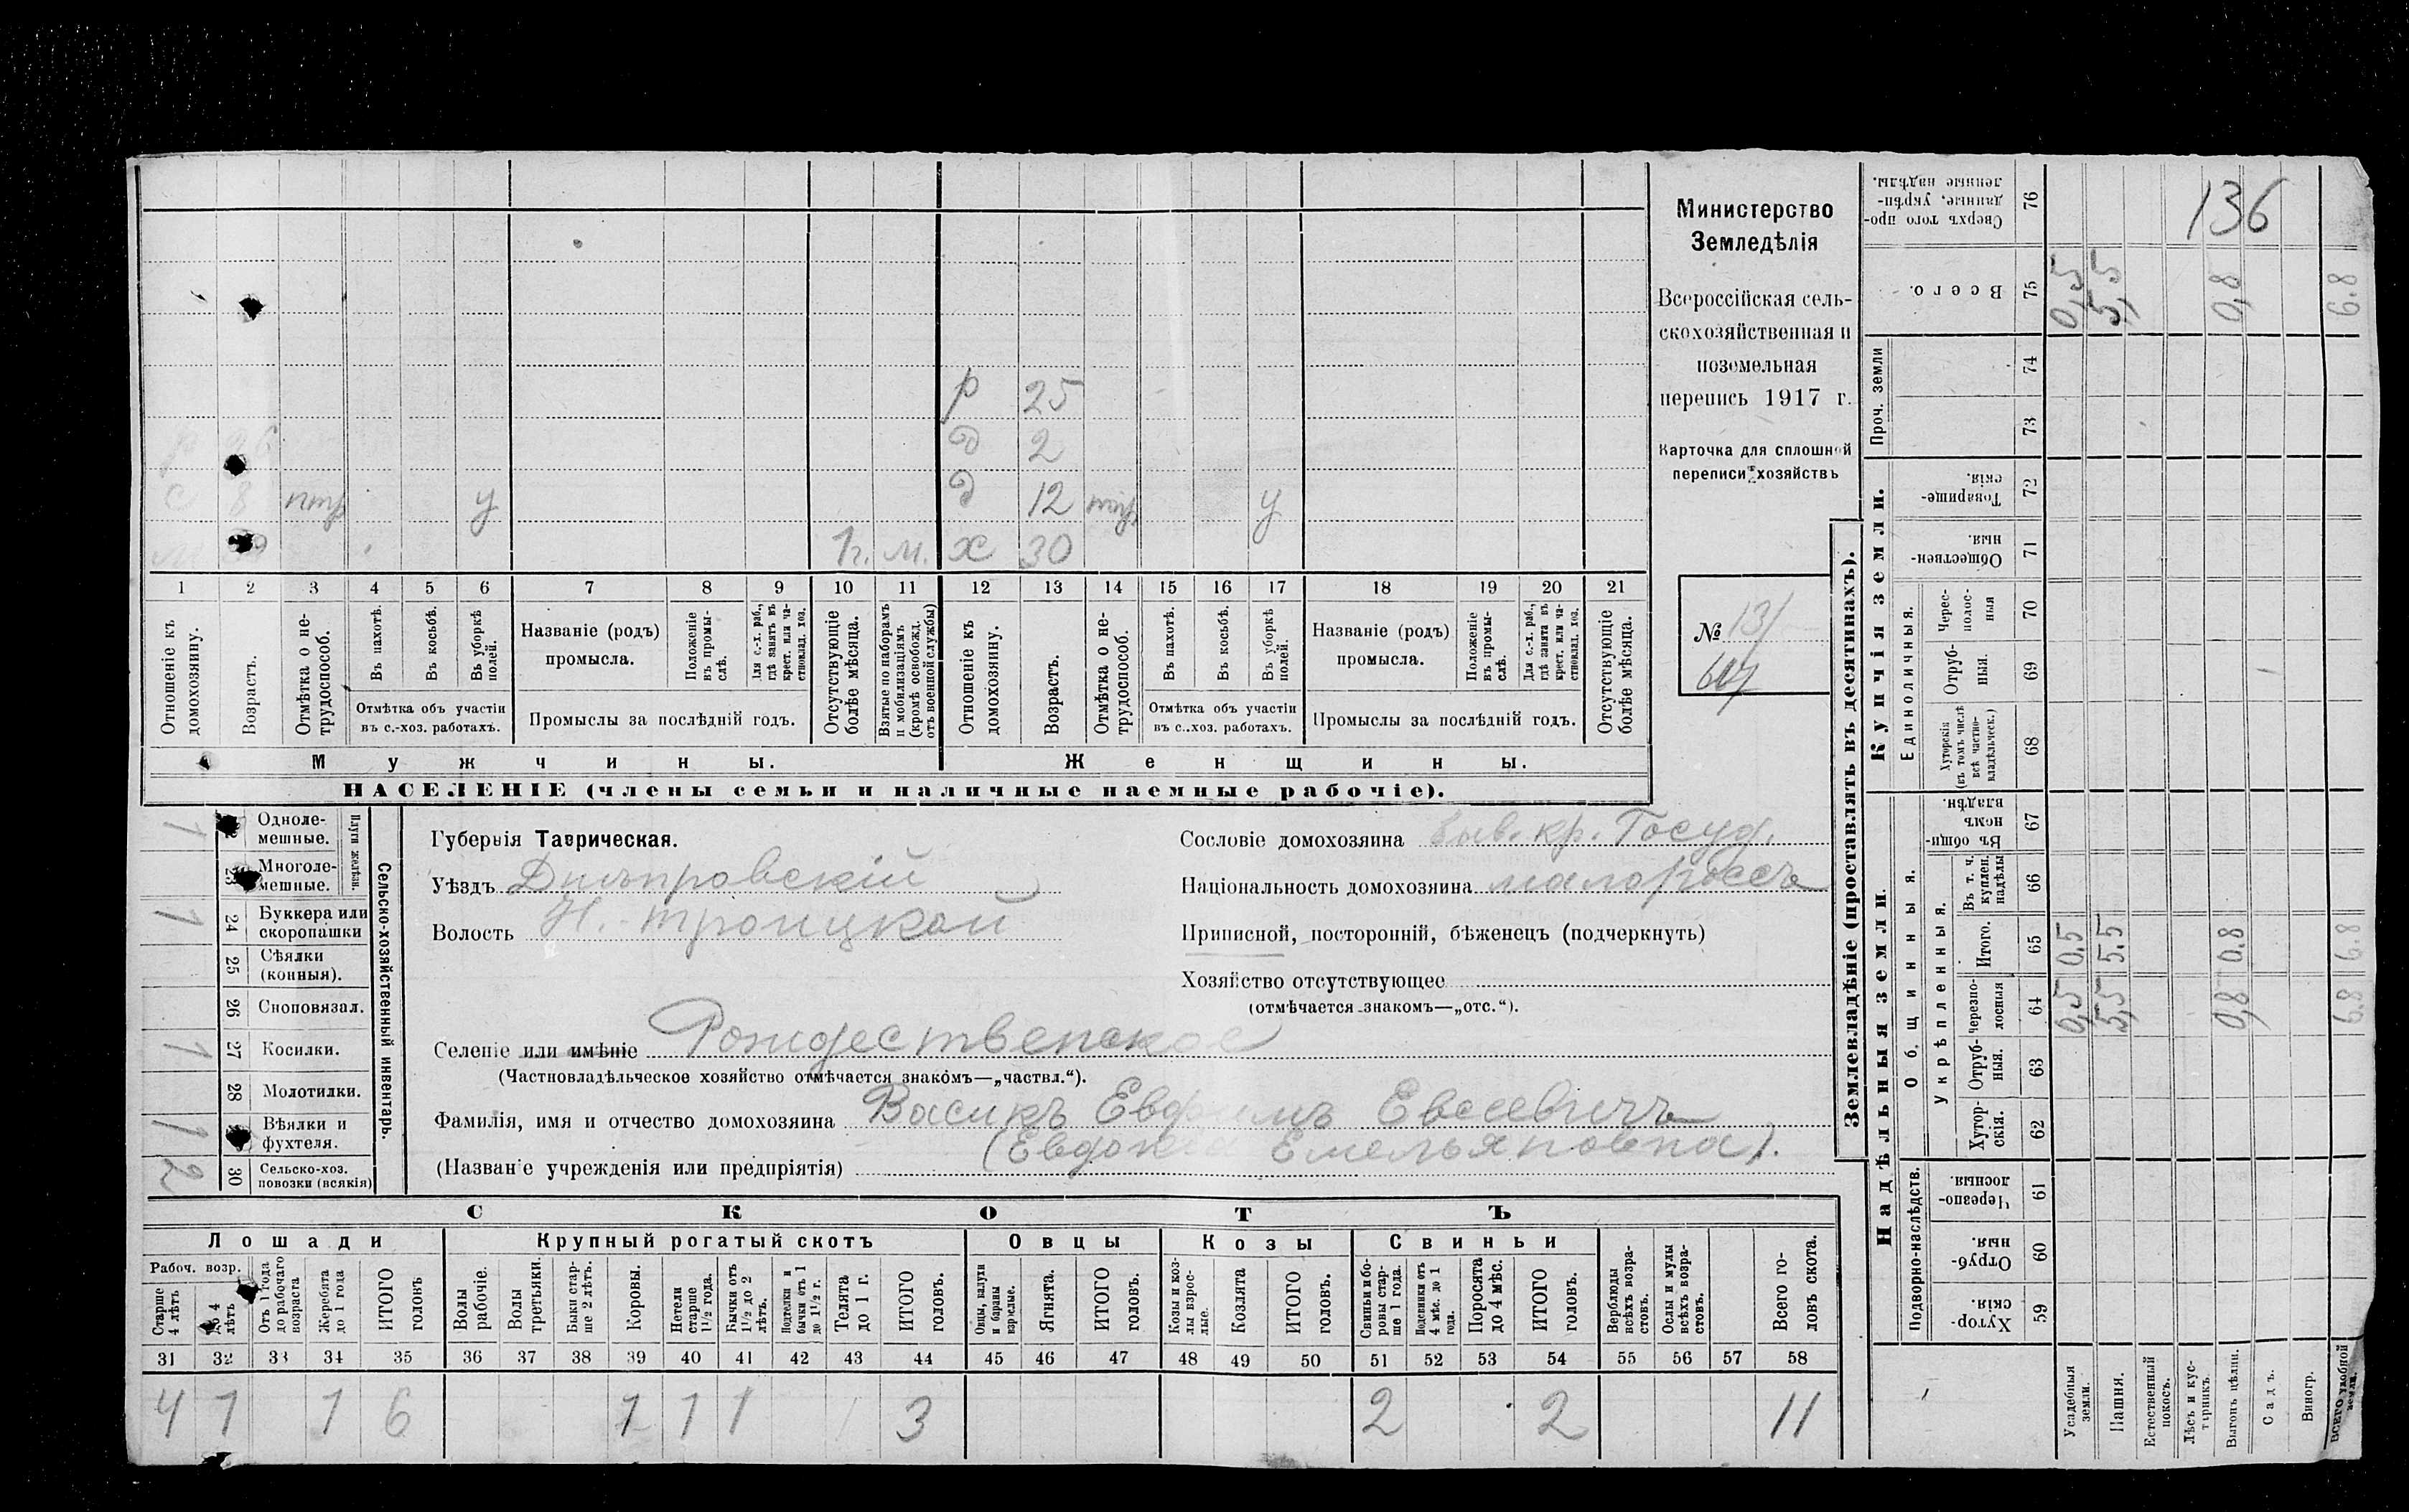 Министерство
Земледѣлія
Всероссійская сель-
скохозяйственная и
поземельная
перепись 1917 г.
Карточка для сплошной
переписи хозяйствъ
№ 131
136
р 25
д 2
с 8 птр у д 12 птр у
1г. м. х 30
1 2 3 4 5 6 7 8 9 10 11 12 13 14 15 16 17 18 19 20 21
Отношеніе къ домохозяину.
Возрастъ.
Отмѣтка о не-трудоспособ.
Въ пахотѣ.
Въ косьбѣ.
Въ уборкѣ полей.
Отмѣтка объ участіи
въ с.-хоз. работахъ.
Названіе (родъ)
промысла.
Положеніе въ промы-слѣ.
Для с.-х. раб., гдѣ занятъ въ крест. или ча-стновлад. хоз.
Промыслы за послѣдній годъ.
Отсутствующіе болѣе мѣсяца.
Взятые по наборамъ и мобилизаціямъ (кромѣ освобожд. отъ военной службы)
Отношеніе къ домохозяину.
Возрастъ.
Отмѣтка о не-трудоспособ.
Въ пахотѣ.
Въ косьбѣ.
Въ уборкѣ полей.
Отмѣтка объ участіи
въ с.-хоз. работахъ.
Названіе (родъ)
промысла.
Положеніе въ промы-слѣ.
Для с.-х. раб., гдѣ занята въ крест. или ча-стновлад. хоз.
Промыслы за послѣдній годъ.
Отсутствующіе болѣе мѣсяца.
Мужчины. Женщины.
НАСЕЛЕНІЕ (члены семьи и наличные наемные рабочіе).
Сельско-хозяйственный инвентарь.
Плуги желѣзн.
Одноле-мешные. 1
Многоле-мешные.
24 Буккера или скоропашки 1
25 Сѣялки (конныя).
26 Сноповязал.
27 Косилки. 1
28 Молотилки.
Вѣялки и фухтеля. 1
30 Сельско-хоз. повозки (всякія) 2
Губернія Таврическая.
Уѣздъ Днѣпровскій
Волость Н.-Троицкой
Сословіе домохозяина быв. кр. Госуд.
Національность домохозяина малороссъ
Приписной, посторонній, бѣженецъ (подчеркнуть)
Хозяйство отсутствующее
(отмѣчается знакомъ—„отс.“).
Селеніе или имѣніе Рождественское
(Частновладѣльческое хозяйство отмѣчается знакомъ—„частвл.“).
Фамилія, имя и отчество домохозяина Васикъ Евфимъ Евсеевичъ
(Евдокія Емельяновна).
(Названіе учрежденія или предпріятія)
СКОТЪ
Лошади Крупный рогатый скотъ Овцы Козы Свиньи
Рабоч. возр.
Старше 4 лѣтъ
До 4 лѣтъ
Отъ 1 года до рабочаго возраста
Жеребята до 1 года
ИТОГО головъ
Волы рабочіе.
Волы третьяки.
Быки стар-ше 2 лѣтъ.
Коровы.
Нетели старше 1½ года.
Бычки отъ 1½ до 2 лѣтъ.
Подтелки и бычки отъ 1 до 1½ г.
Телята до 1 г.
ИТОГО головъ.
Овцы, валухи и бараны взрослые.
Ягнята.
ИТОГО головъ.
Козы и коз-лы взрос-лые.
Козлята
ИТОГО головъ.
Свиньи и бо-ровы стар-ше 1 года.
Подсвинки отъ 4 мѣс. до 1 года.
Поросята до 4 мѣс.
ИТОГО головъ.
Верблюды всѣхъ возра-стовъ.
Ослы и мулы всѣхъ возра-стовъ.
Всего го-ловъ скота.
31 32 33 34 35 36 37 38 39 40 41 42 43 44 45 46 47 48 49 50 51 52 53 54 55 56 57 58
4 1 1 6 1 1 1 3 2 2 11
Землевладѣніе (проставлять въ десятинахъ).
Надѣльныя земли. Купчія земли. Проч. земли
Подворно-наслѣдств. Общинныя. Единоличныя.
Укрѣпленныя.
59 Хутор-скія.
60 Отруб-ныя.
61 Черезпо-лосныя.
62 Хутор-скія.
63 Отруб-ныя.
64 Черезпо-лосныя 0,5 5,5 0,8 6.8
65 Итого. 0,5 5.5 0.8 6.8
66 Въ т. ч. куплен. надѣлы
67 Въ общи-номъ владѣн.
68 Хуторскія (въ томъ числѣ всѣ частно-владѣльческ.)
69 Отруб-ныя.
70 Черес-полос-ныя
71 Обществен-ныя.
72 Товарище-скія.
73
74
75 Всего. 0,5 5,5 0,8 6.8
76 Сверхъ того про-данные, укрѣп-ленные надѣлы.
Усадебныя земли.
Пашня.
Естественный покосъ.
Лѣсъ и кус-тарникъ.
Выгонъ цѣлин.
Садъ.
Виногр.
Всего удобной земли.